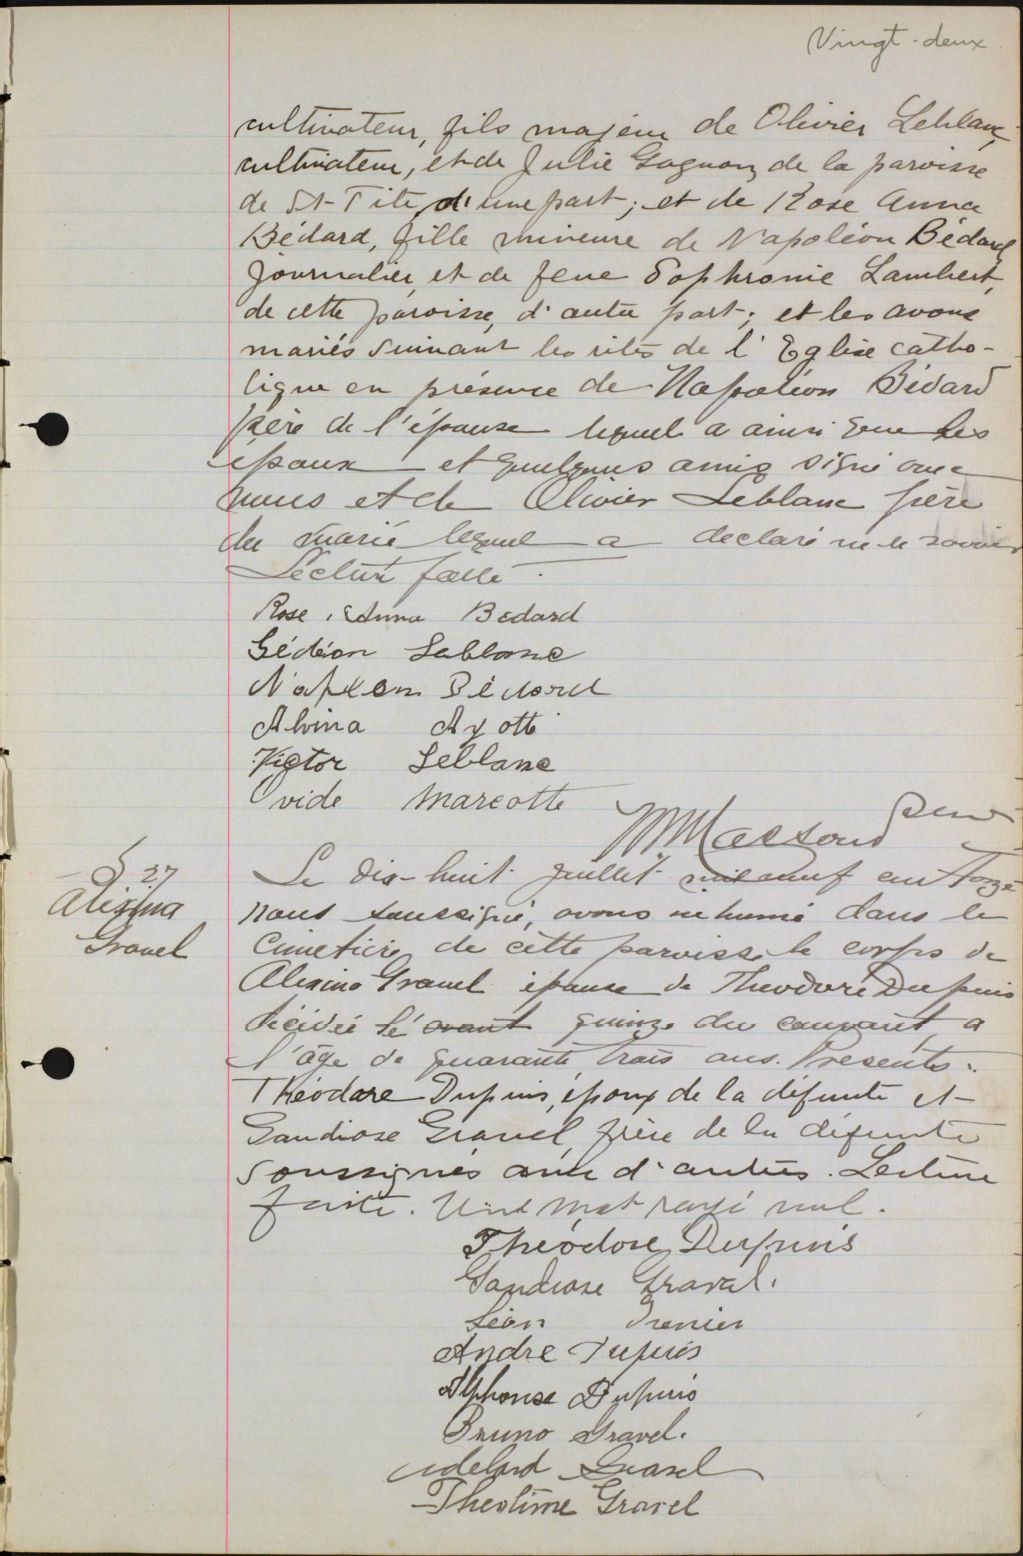 Vingt-deux
cultivateur, fils majeur de Olivier Leblanc,
cultivateur, et de Julie Gagnon, de la paroisse
de St-Tite, d'une part; et de Rose Anna
Bédard, fille mineure de Napoléon Bédard,
journalier, et de feue Sophronie Lambert,
de cette paroisse, d'autre part; et les avons
mariés suivant les rites de l'Eglise catho-
lique en présence de Napoléon Bédard
père de l'épouse lequel a ainsi que les
époux et quelques amis signé avec
nous et de Olivier Leblanc père
du marié lequel a declaré ne le savoir
Lecture faite.
Rose Anna Bedard
Gédéon Leblanc
Napleon Bédard
Alvina Ayotte
Victor Leblanc
Ovide Marcotte
Masson
S 27
Alexina
Gravel
Le dix-huit juillet mil neuf cent onze
nous soussigné, avons inhumé dans le
cimetière de cette paroisse le corps de
Alexina Gravel épouse de Theodore Dupuis
décédée le avant quinze du courant a
l'âge de quarante trois ans. Presents:
Théodore Dupuis, époux de la défunte et
Gaudiose Gravel, frère de la défunte
soussignés avec d'autres. Lecture
faite. Un mot rayé nul.
Théodore Dupuis
Gaudiose Gravel.
Léon Grenier
Andre Dupuis
Alphonse Dupuis
Bruno Gravel.
Adelard Gravel
Theotime Gravel